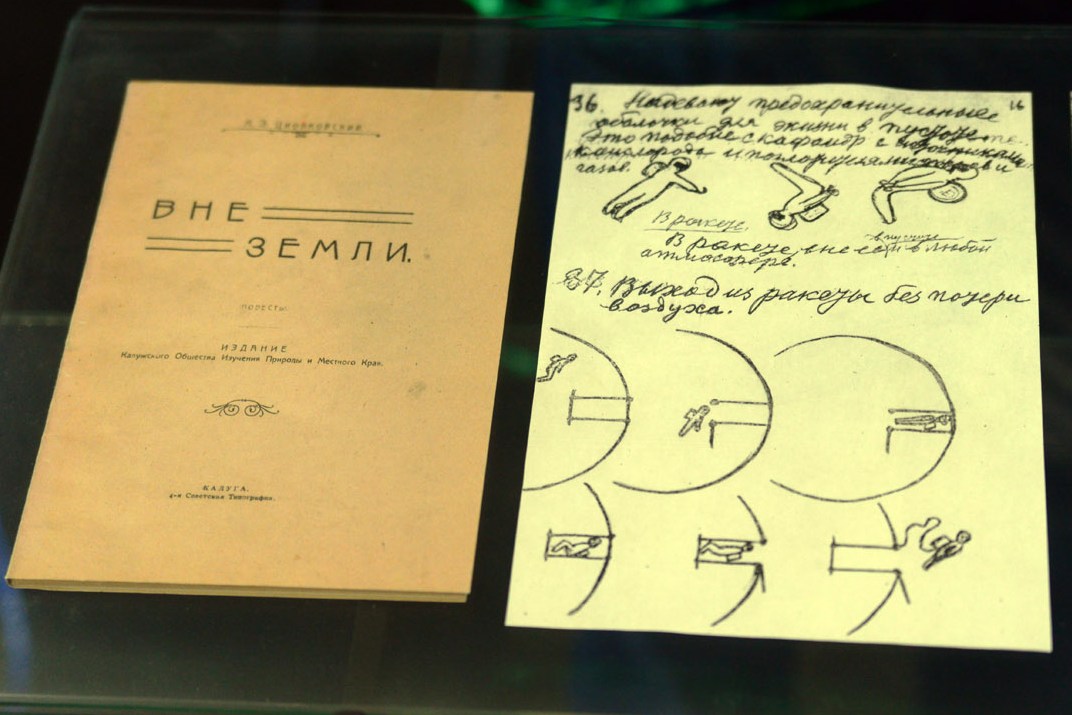 К. Э. Циолковский
ВНЕ
ЗЕМЛИ.
ПОВЕСТЬ
ИЗДАНИЕ
Калужского Общества Изучения Природы и Местного Края.
КАЛУГА.
4-я Советская Типография.
16
36. Надевают предохранительные
оболочки для жизни в пустоте.
Это подобие скафандр с
кислорода и
газов.
В ракете,
в пустоте
В ракете, вне её и в любой
атмосфере.
37. Выход из ракеты без потери
воздуха.